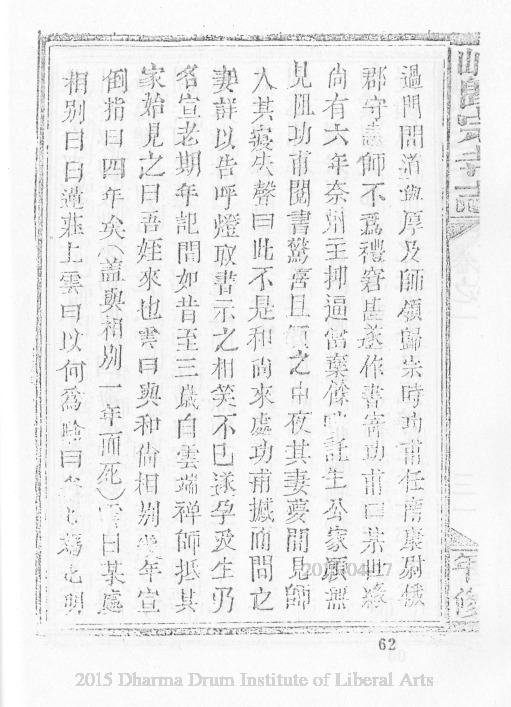 過門問道與厚及師領歸宗時功甫任南康尉俄
郡守恚師不為禮窘甚遂作書寄功甫曰某世緣
尚有六年奈州主抑逼當棄餘喘託生公家願無
見阻功甫閱書驚喜且頷之中夜其妻夢間見師
入其寢失聲曰此不是和尚來處功甫撼而問之
妻詳以告呼燈取書示之相笑不已遂孕及生乃
名宣老期年記問如昔至三歲白雲端禪師抵其
家始見之曰吾姪來也雲曰與和尚相別幾年宣
倒指曰四年矣(蓋與相別一年而死)雲曰某處
相別曰白蓮莊上雲曰以何為驗曰
年修
62
2015 Dharma Drum Institute of Liberal Arts